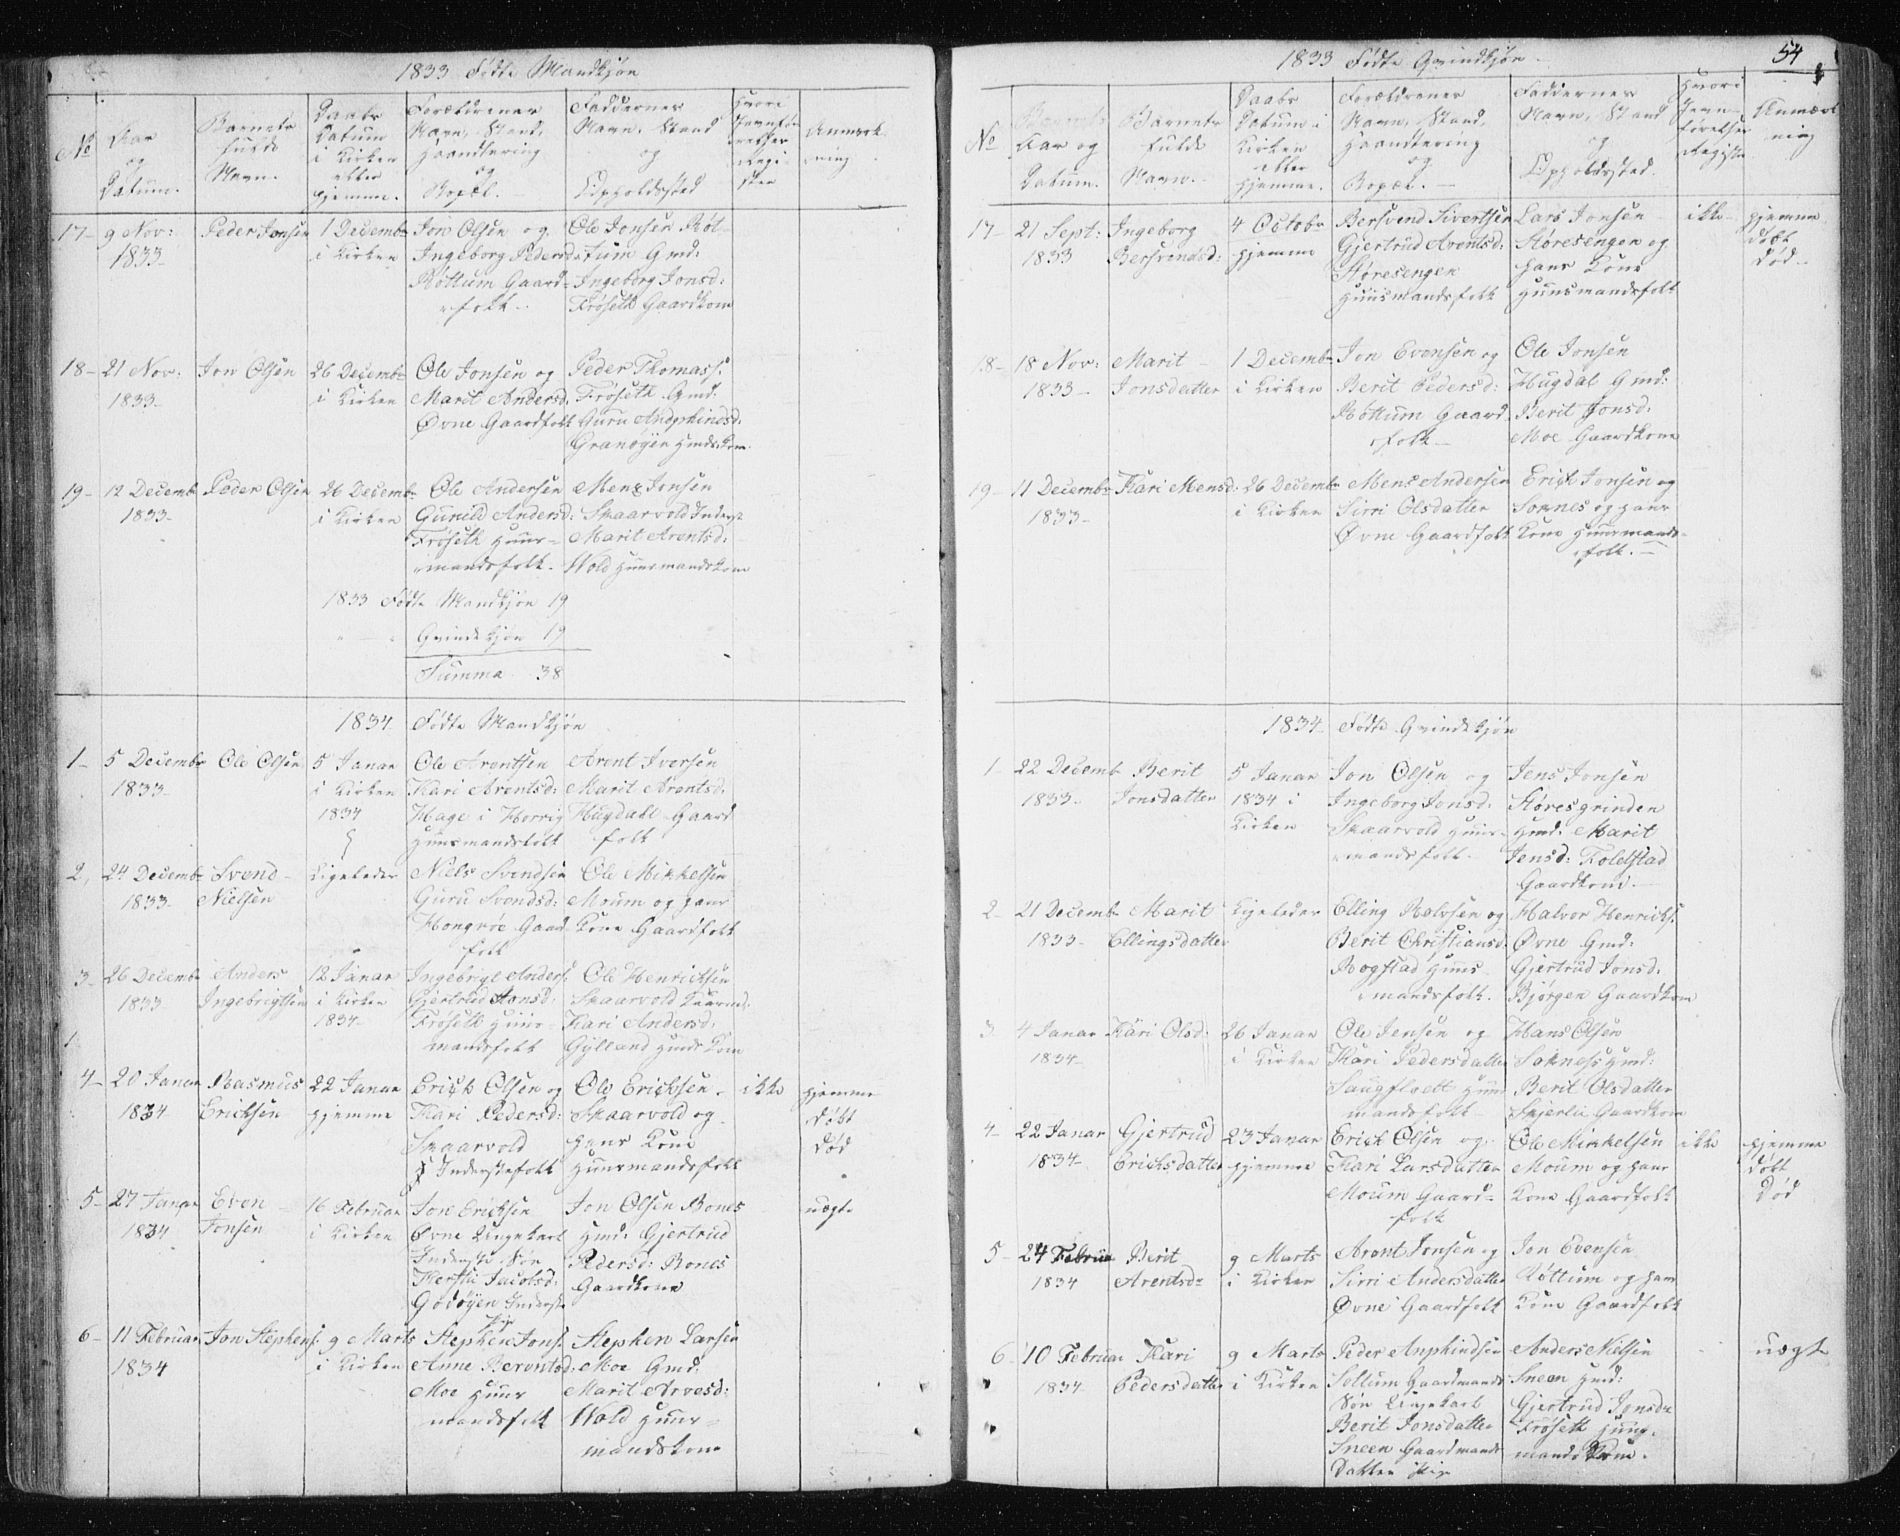 1833 Fødte Mandkjøn
No
Aar
og
Datum.
Barnets
fulde
Navn.
Daabs
Datum
i Kirken
eller
hjemme.
Forældrenes
Navn, Stand,
Haandtering
og
Bopæl.
Faddernes
Navn, Stand
og
Opholdssted
Hvori
Jevnfø-
relses
Regi-
ster
Anmærk-
ning
17-
9 Nov:
1833-
Peder Jonsen
1 Decembr
i Kirken
Jon Olsen og
Ingeborg Pedersd:
Røttum Gaard-
folk-
Ole Jonsen Røt-
tum Gmd:
Ingeborg Jonsd:
Frøseth Gaardkone
18-
21 Nov:
1833-
Jon Olsen
26 Decembr
i Kirken
Ole Jonsen og
Marit Andersd:
Øvne Gaardfolk
Peder Thomass:
Frøseth Gmd:
Guru
Granøyen Hmds: Kone
19-
12 Decemb
1833-
Peder Olsen
26 Decembr
i Kirken
Ole Andersen
Gunild Andersd:
Frøseth Huus-
mandsfolk.
Mens Jonsen
Skaarvold Inderst
Marit Arentsd:
Wold Huusmandskone
1833 Fødte Mandkjøn 19
" — " Qvindekjøn 19
Summa 38
1834 Fødte Mandkjøn
1-
5 Decembr
1833-
Ole Olsen
5 Janar
i Kirken
1834
Ole Arentsen
Kari Arentsd:
Hage i Horrig
Huusmandsfolk
Arent Iversen
Marit Arentsd:
Hugdahl Gaard
folk
2,
24 Decembr
1833-
Svend
Nielsen
Ligeledes
Niels Svendsen
Guru Svendsd:
Hongrøe Gaard-
folk
Ole Mikkelsen
Moum og hans
Kone Gaardfolk
3-
26 Decembr
1833
Anders
Ingebrigtsen
12 Janar
i Kirken
1834-
Ingebrigt Anders:
Gjertrud Jonsd:
Frøseth Huus-
mandsfolk
Ole Henricksen
Skaarvold
Kari Andersd:
Gylland Hmds Kone
4-
20 Janar
1834
Rasmus
Ericksen
22 Janar
hjemme
Erich Olsen og
Kari Pedersd:
Skaarvold
Inderstefolk
Ole Ericksen
Skaarvold og
hans Kone
Huusmandsfolk
ikke
hjemme
døbt
død
5-
27 Janar
1834
Even
Jonsen
16 Februar
i Kirken
Jon Ericksen
Øvne Ungekarl
Inderste Søn
Kersti Jacobsd:
Godøyen Inderste
Jon Olsen Bones
Hmd: Gjertrud
Pedersd: Bones
Gaardkone
uægte
6-
11 Februar
1834
Jon Stephens:
9 Marts
i Kirken
Stephen Jons:
Anne Berentsd:
Moe Huus
mandsfolk
Stephen Larsen
Moe Gmd:
Marit Arvesd:
Wold Huus-
mandskone
54
1833 Fødte Qvindkjøn
No
Barnets
Aar og
Datum.
Barnets
fulde
Navn.
Daabs
Datum i
Kirken
eller
hjemme.
Forældrenes
Navn, Stand,
Haandtering
og
Bopæl.
Faddernes
Navn, Stand
og
Opholdssted.
Hvori
Jevn-
førelses
Registe
Anmærk
ning
17-
21 Sept:
1833
Ingeborg
Bersvendsd:
4 Octobr
hjemme
Bersvend Sivertsen
Gjertrud Arentsd:
Støresengen
Huusmandsfolk
Lars Jonsen
Støresengen og
hans Kone
Huusmandsfolk
ikke
hjemme
døbt
død
18-
18 Nov:
1833-
Marit
Jonsdatter
1 Decembr
i Kirken
Jon Evensen og
Berit Pedersd:
Røttum Gaard
folk-
Ole Jonsen
Hugdal Gmd:
Berit Jonsd:
Moe Gaardkone
19-
11 Decembr
1833-
Kari Mensd:
26 Decembr
i Kirken
Mens Andersen
Sirri Olsdatter
Øvne Gaardfolk
Erich Jonsen og
Soknes og hans
Kone Huusmands-
folk.
1834- Fødte Qvindekjøn
1-
22 Decemb
1833-
Berit
Jonsdatter
5 Janar
1834 i
Kirken
Jon Olsen og
Ingeborg Jonsd:
Skaarvold Huus-
mandsfolk-
Jens Jonsen
Størresgrinden
Hmd: Marit
Jensd: Foldstad
Gaardkone.
2-
21 Decemb
1833-
Marit
Ellingsdatter
Ligeledes
Elling Rolvsen og
Berit Christiansd:
Rogstad Huus-
mandsfolk.
Halvor Henricks:
Øvne Gmd:
Gjertrud Jonsd:
Bjørgen Gaardkone
3
4 Janar
1834-
Kari Olsd:
26 Janar
i Kirken
Ole Jensen og
Kari Pedersdatter
Huus
mandsfolk-
Hans Olsen
Soknes Hmd:
Berit Olsdatter
Skjerlie Gaardkone
4-
22 Janar
1834-
Gjertrud
Ericksdatter
23 Janar
hjemme
Erich Olsen og
Kari Larsdatter
Moum Gaard-
folk
Ole Mikkelsen
Moum og hans
Kone Gaardfolk
ikke
hjemme
døbt
Død
5-
24 Februar
1834
Berit
Arentsdr
9 Marts
i Kirken
Arent Jonsen og
Sirri Andersdatter
Øvne Gaardfolk
Jon Evensen
Røttum og hans
Kone Gaardfolk
6-
10 Februar
1834-
Kari
Pedersdatter
9 Marts
i Kirken
Peder
Gaardmands
Søn Ungekarl
Berit Jonsdatter
Sneen Gaardmands
Datter Pige
Anders Nielsen
Sneen Hmd:
Gjertrud Jonsdr
Frøseth Huus-
mands Kone.
uægt